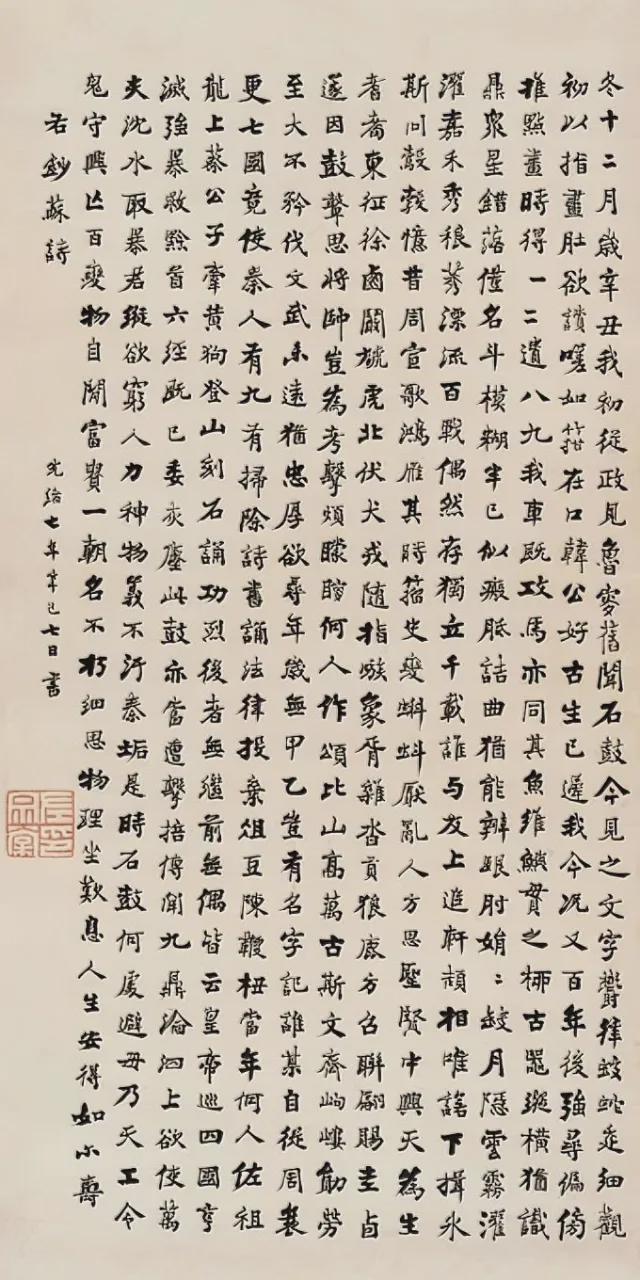 冬十二月歲辛丑我初從政見魯叟舊聞石鼓今見之文字鬱律蛟蛇走細觀
初以指畫肚欲讀嗟如箝在口韓公好古生已遲我今況又百年後強尋偏傍
推點畫時得一二遺八九我車既攻馬亦同其魚維鱮貫之柳古器縱橫猶識
鼎眾星錯落僅名斗模糊半已似瘢胝詰曲猶能辨跟肘娟〻缺月隱雲霧濯
濯嘉禾秀稂莠漂流百戰偶然存獨立千載誰与友上追軒頡相唯諾下揖冰
斯同鷇㝅憶昔周宣歌鴻雁其時籀史變蝌蚪厭亂人方思聖賢中興天為生
耆耇東征徐虜闞虓虎北伏犬戎隨指嗾象胥雜沓貢狼鹿方召聯翩賜圭卣
遂因鼓鼙思將帥豈為考擊煩矇瞍何人作頌比山高萬古斯文齊岣嶁勛勞
至大不矜伐文武未遠猶忠厚欲尋年歲無甲乙豈有名字記誰某自從周衰
更七國竟使秦人有九有掃除詩書誦法律投棄俎豆陳鞭杻當年何人佐祖
龍上蔡公子牽黃狗登山刻石誦功烈後者無繼前無偶皆云皇帝巡四國亨
滅強暴救黔首六經既已委灰塵此鼓亦當遭擊掊傳聞九鼎淪泗上欲使萬
夫沈水取暴君縱欲窮人力神物義不汙秦垢是時石鼓何處避毋乃天工令
鬼守興亡百變物自閒富貴一朝名不朽細思物理坐歎息人生安得如尔壽
右鈔蘇詩
光緒七年辛巳七日書